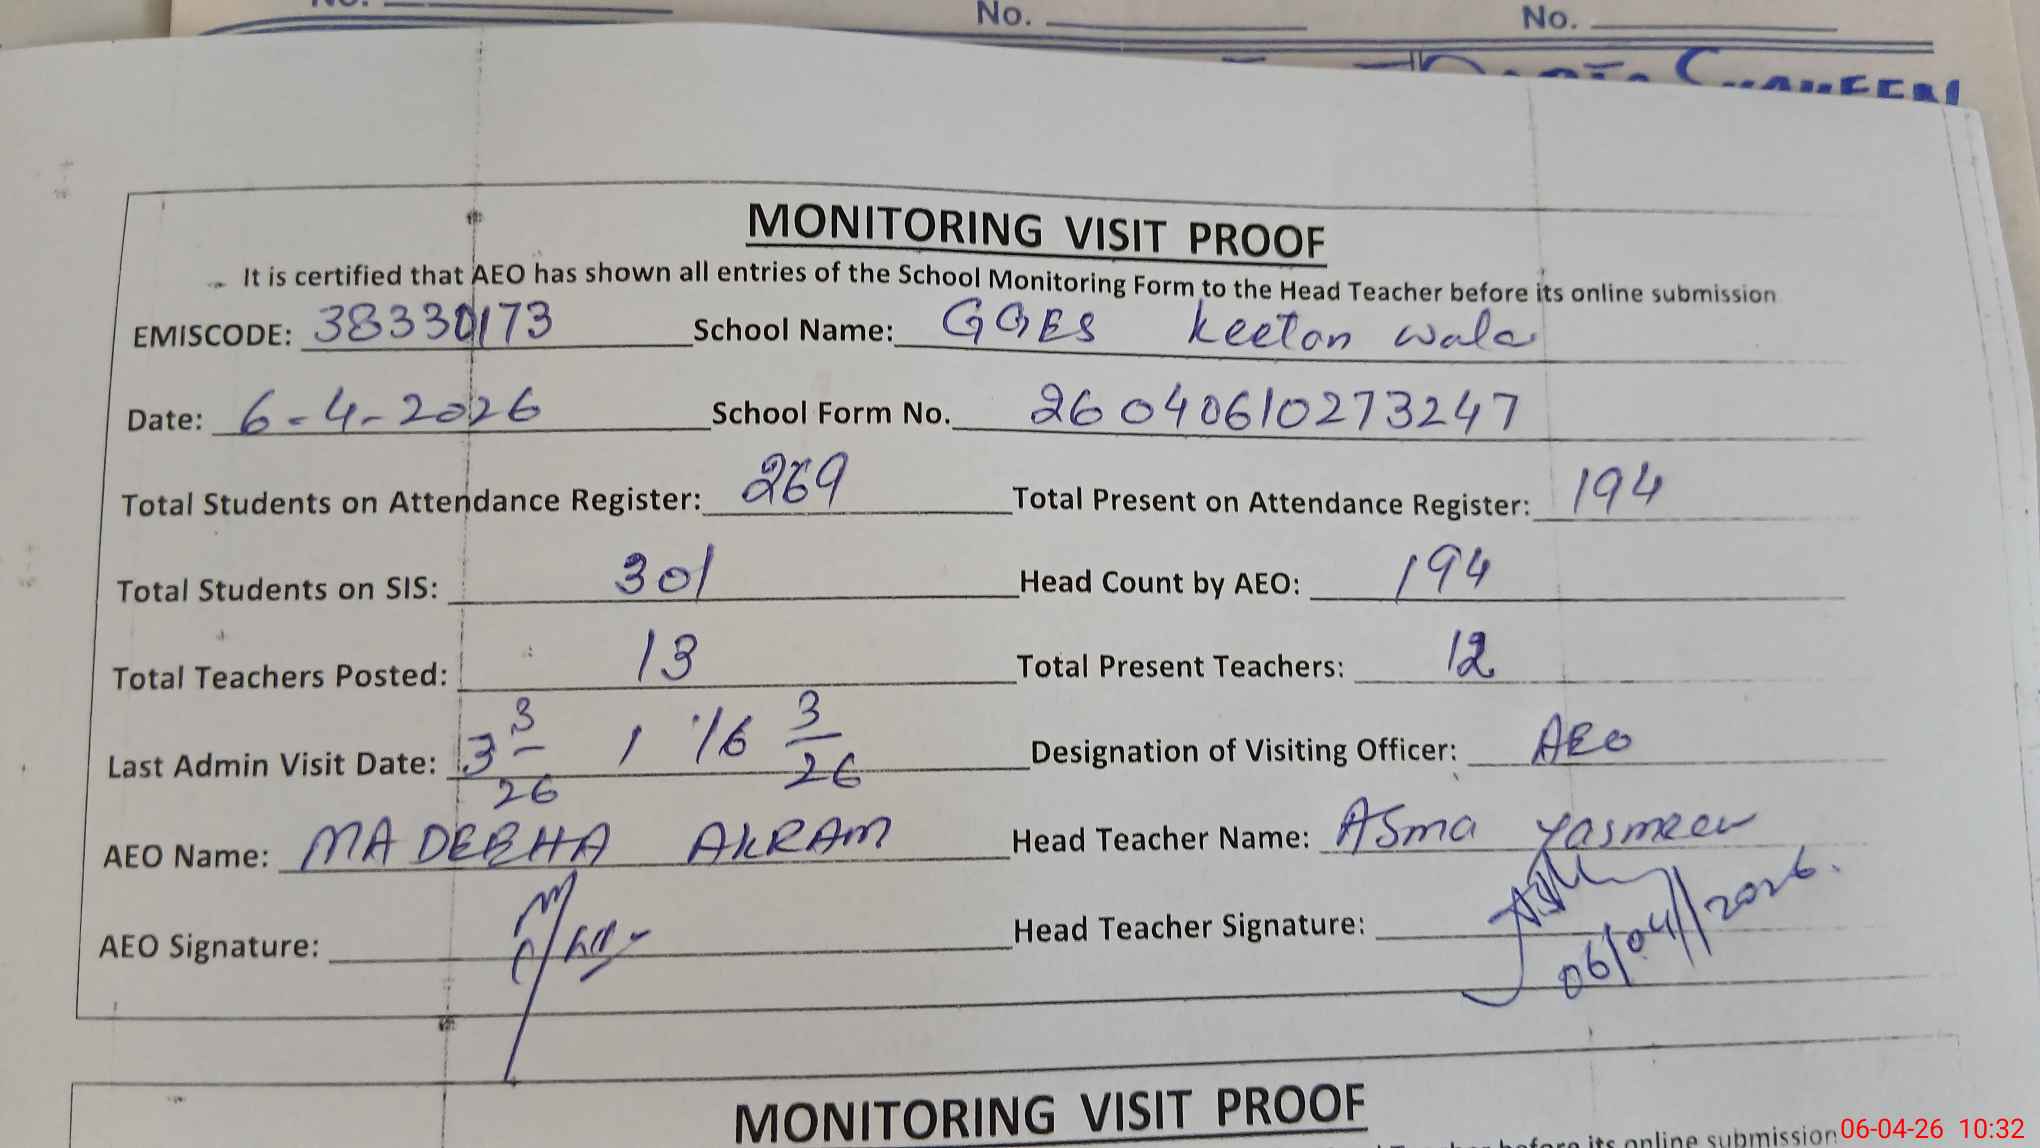 No. No.
MONITORING VISIT PROOF
It is certified that AEO has shown all entries of the School Monitoring Form to the Head Teacher before its online submission
EMISCODE: 38330173 School Name: GGES Keetan wala
Date: 6-4-2026 School Form No. 26040610273247
Total Students on Attendance Register: 269 Total Present on Attendance Register: 194
Total Students on SIS: 301 Head Count by AEO: 194
Total Teachers Posted: 13 Total Present Teachers: 12
Last Admin Visit Date: 13 3/26 , 16 3/26 Designation of Visiting Officer: AEO
AEO Name: MADEEHA AKRAM Head Teacher Name: Asma Yasmeen
AEO Signature: Head Teacher Signature:
06/04/2026.
MONITORING VISIT PROOF
before its online submission
06-04-26 10:32